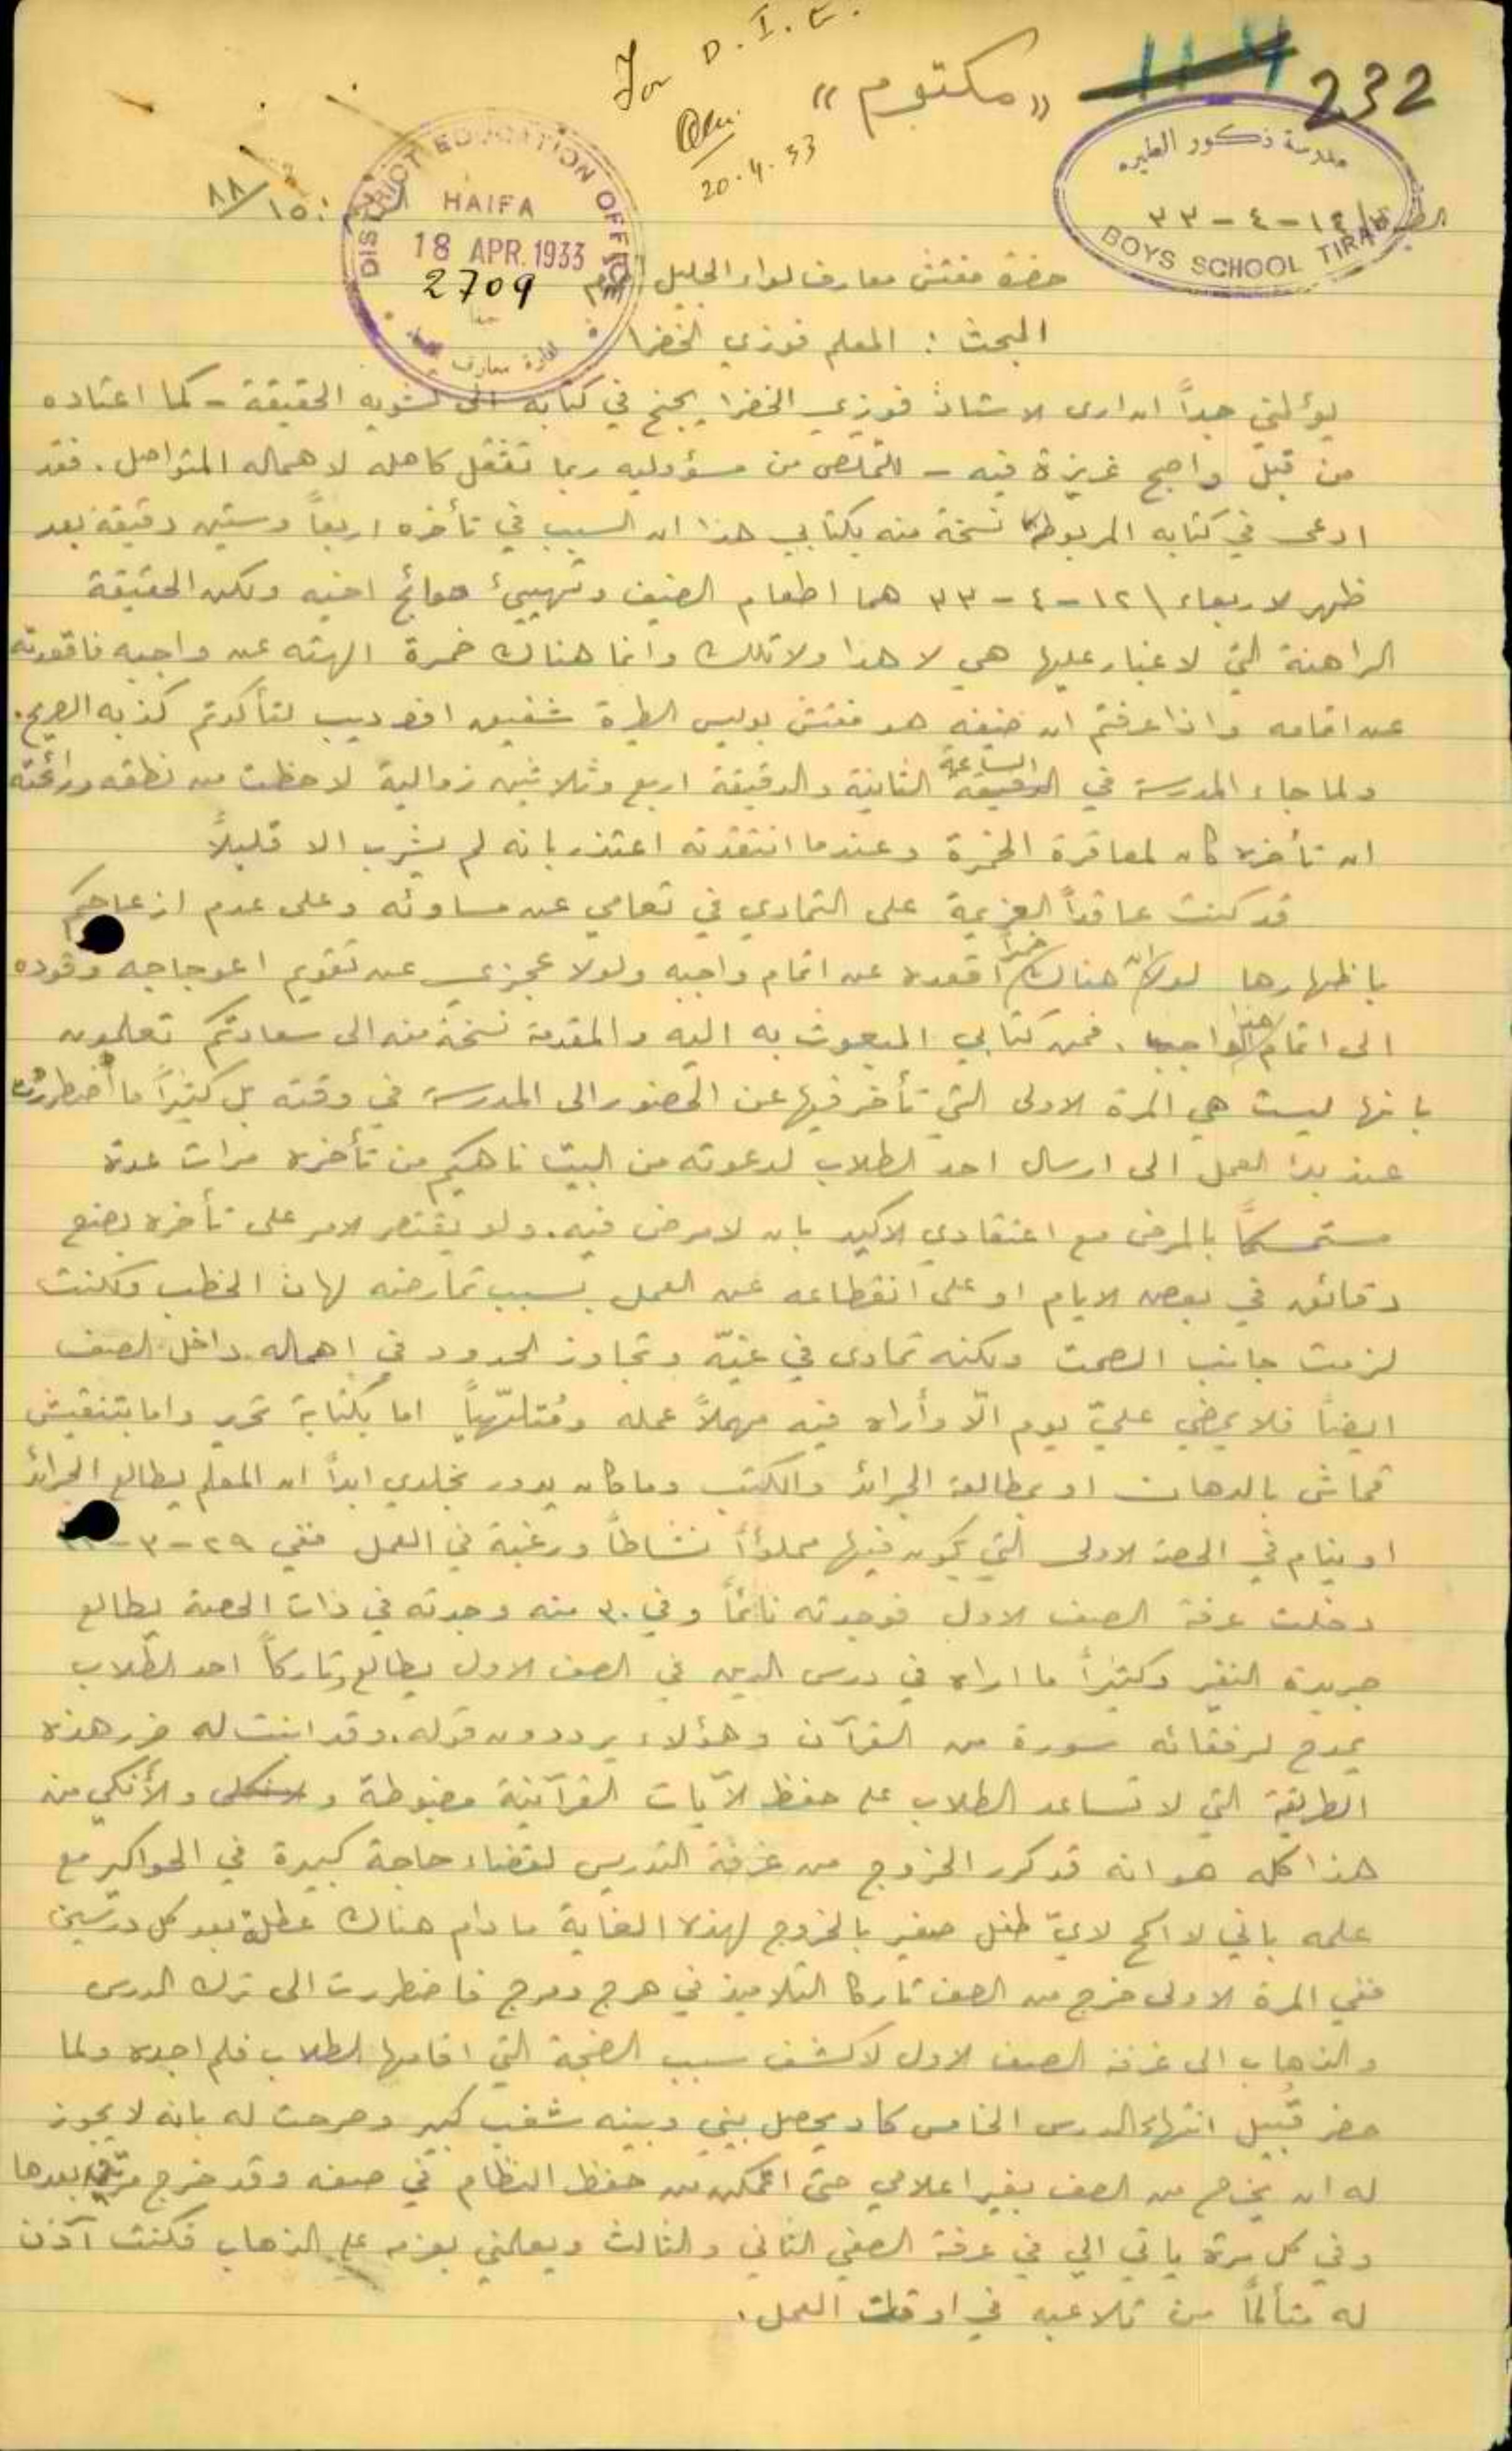 For D.I.E.
20.4.33
«مكتوم»
114
232
مدرسة ذكور الطيره
BOYS SCHOOL TIRAH
١٤-٤-٣٣
٨٨/١٥
DISTRICT EDUCATION OFFICE
HAIFA
18 APR. 1933
2709
ادارة معارف
حضرة مفتش معارف لواء الجليل
البحث : المعلم فوزي الخضرا
يؤلمني جداً ان ارى الاستاذ فوزي الخضرا يجنح في كتابه الى تشويه الحقيقة - كما اعتاده
من قبل واصبح غريزة فيه - للتملص من مسؤوليه ربما تثقل كاهله لاهماله المتواصل. فقد
ادعى في كتابه المربوطة نسخة منه بكتابي هذا ان السبب في تأخره اربعاً وستين دقيقة بعد
ظهر الاربعاء ١٢-٤-٣٣ هما اطعام الضيف وتهييئ حوائج اخيه ولكن الحقيقة
الراهنة التي لا غبار عليها هي لا هذا ولا تلك وانما هناك خمرة الهته عن واجبه فاقعدته
عن اتمامه واذا عرفتم ان ضيفه هو مفتش بوليس الطيرة شفيق افندي لتأكدتم كذبه الصريح.
ولما جاء المدرسة في الساعة الثانية والدقيقة اربع وثلاثين زوالية لاحظت من نطقه ورائحته
ان تأخره كان لمعاقرة الخمرة وعندما انتقدته اعتذر بانه لم يشرب الا قليلاً
قد كنت عاقداً العزيمة على التمادي في تعامي عن مساوئه وعلى عدم ازعاجكم
باظهارها لولا ان هناك خمراً اقعده عن اتمام واجبه ولولا عجزي عن تقويم اعوجاجه وقوده
الى اتمام هذا الواجب. فمن كتابي المبعوث به اليه والمقدمة نسخة منه الى سعادتكم تعلمون
بانها ليست هي المرة الاولى التي تأخر فيها عن الحضور الى المدرسة في وقته بل كثيراً ما اضطررت
عند بدا العمل الى ارسال احد الطلاب لدعوته من البيت ناهيكم من تأخره مرات عدة
مستمسكاً بالمرض مع اعتقادي الاكيد بان لا مرض فيه. ولو يقتصر الامر على تأخره بضع
دقائق في بعض الايام او على انقطاعه عن العمل بسبب تمارضه لهان الخطب ولكنت
لزمت جانب الصمت ولكنه تمادى في غيّه وتجاوز الحدود في اهماله داخل الصف
ايضاً فلا يمضي عليّ يوم الّا وأراه فيه مهملاً عمله ومُتلهّياً اما بكتابة تحرير واما بتنقيش
قماش بالدهان او بمطالعة الجرائد والكتب وما كان يدور بخلدي ابداً ان المعلم يطالع الجرائد
او ينام في الحصة الاولى التي يكون فيها مملوءاً نشاطاً ورغبة في العمل ففي ٢٩-٣-
دخلت غرفة الصف الاول فوجدته نائماً وفي ٣٠ منه وجدته في ذات الحصة يطالع
جريدة النفير وكثيراً ما اراه في درس الدين في الصف الاول يطالع وتاركاً احد الطلاب
يمدح لرفقائه سورة من القرآن وهؤلاء يرددون قوله. وقد ابنت له ضرر هذه
الطريقة التي لا تساعد الطلاب على حفظ الآيات القرآنية مضبوطة والأنكى من
هذا كله هو انه قد كرر الخروج من غرفة التدريس لقضاء حاجة كبيرة في الحواكير مع
علمه باني لا اسمح لايّ طفل صغير بالخروج لهذه الغاية ما دام هناك عطلة بعد كل درسين
ففي المرة الاولى خرج من الصف تاركا التلاميذ في هرج ومرج فاضطررت الى ترك الدرس
والذهاب الى غرفة الصف الاول لاكشف سبب الضجة التي اقامها الطلاب فلم اجده ولما
حضر قُبيل انتهاء الدرس الخامس كاد يحصل بيني وبينه شغب كبير وصرحت له بانه لا يجوز
له ان يخرج من الصف بغير اعلامي حتى اتمكن من حفظ النظام في صفه وقد خرج مرّتين بعدها
وفي كل مرة ياتي الي في غرفة الصفي الثاني والثالث ويعلمني بعزمه على الذهاب فكنت آذن
له متألماً من تلاعبه في اوقات العمل.